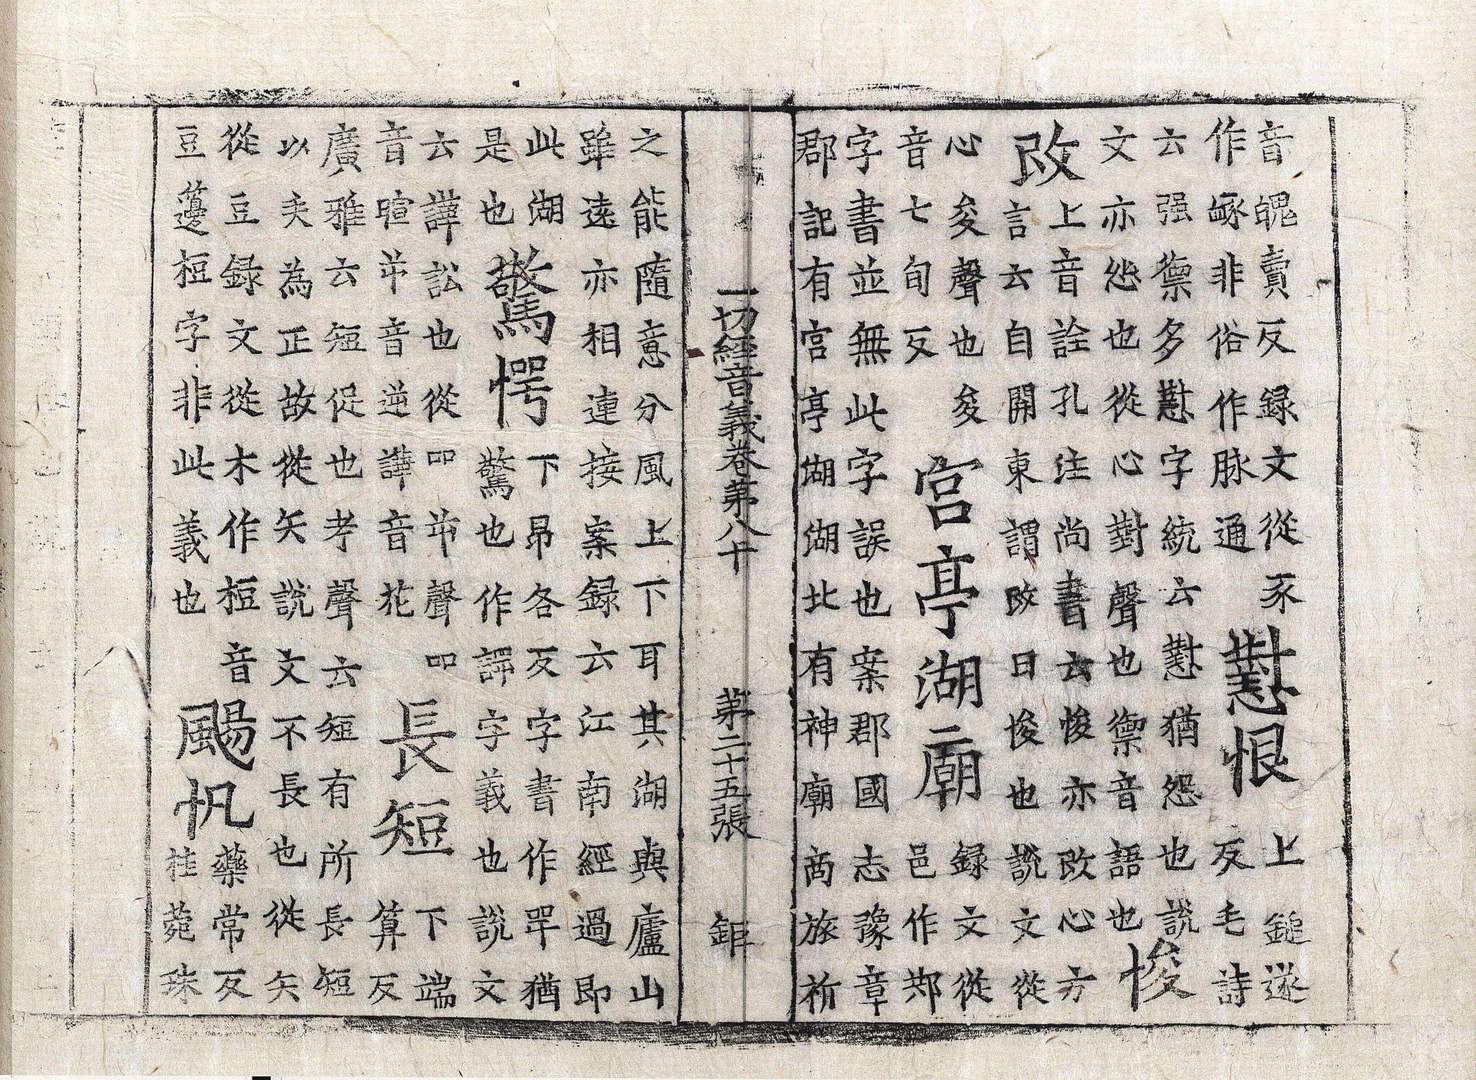 音䰎賣反録文從豕
作䐁非俗作脉通
懟恨
上鎚遂
反毛詩
云强禦多懟字統云懟猶怨也說
文亦怨也從心對聲也禦音語也
悛
改
上音詮孔注尚書云悛亦改心方
言云自關東謂改曰悛也說文從
心夋聲也夋
音七旬反
宮亭湖廟
録文從
邑作䣆
字書並無此字誤也案郡國志豫章
郡記有宮亭湖湖北有神廟商旅祈
一切經音義卷第八十 第二十五張 鉅
之能隨意分風上下耳其湖與廬山
雖遠亦相連接案録云江南經過即
此湖
是也
驚愕
下昂各反字書作咢猶
驚也作諤字義也說文
云譁訟也從吅屰聲吅
音喧屰音逆譁音花
長短
下端
算反
廣雅云短促也考聲云短有所長短
以矢為正故從矢說文不長也從矢
從豆録文從木作桓音
豆䕯桓字非此義也
颺帆
藥常反
桂菀珠